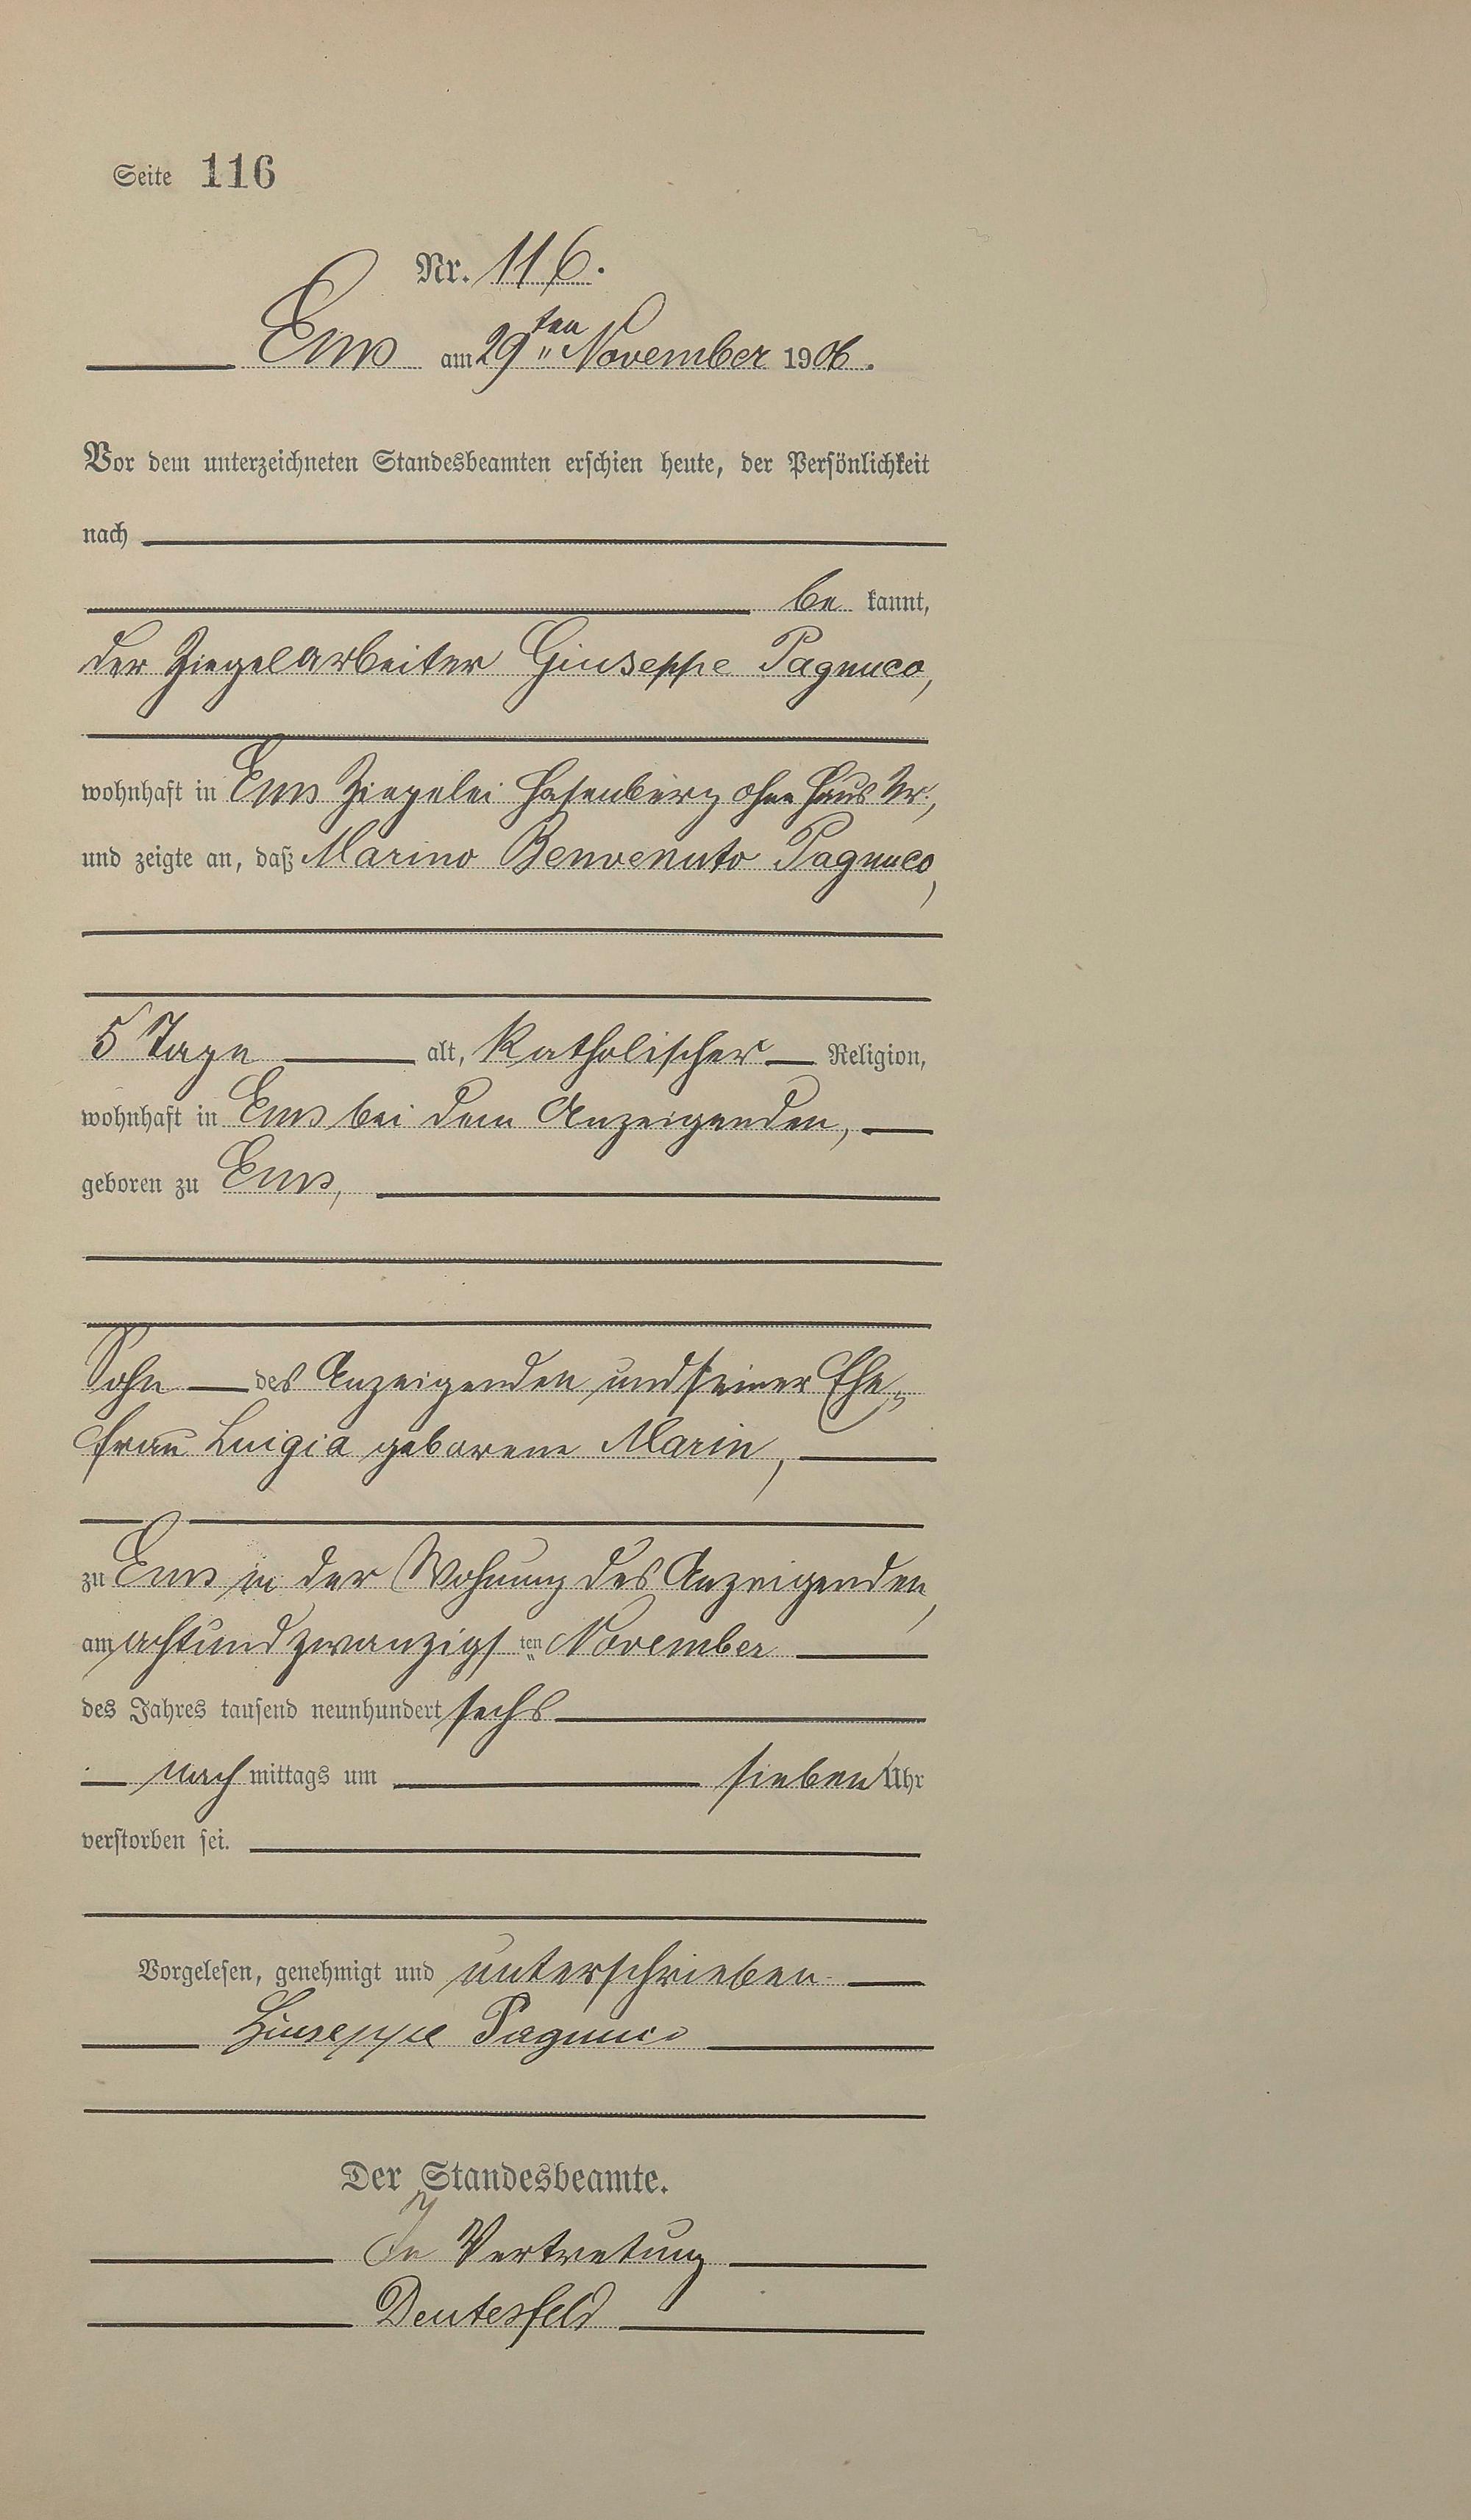 Seite 116
Nr. 116.
Ems am 29ten November 1906.
Vor dem unterzeichneten Standesbeamten erschien heute, der Persönlichkeit
nach
be kannt,
der Ziegelarbeiter Giuseppe Pagnuco,
wohnhaft in Ems Ziegelei Hasenberg ohne Haus Nr.,
und zeigte an, daß Marino Benvenuto Pagnuco,
5 Tage alt, katholischer Religion,
wohnhaft in Ems bei dem Anzeigenden,
geboren zu Ems,
Sohn des Anzeigenden und seiner Ehe-
frau Luigia geborene Marin,
zu Ems in der Wohnung des Anzeigenden,
am achtundzwanzigsten November
des Jahres tausend neunhundert sechs
nach mittags um sieben Uhr
verstorben sei.
Vorgelesen, genehmigt und unterschrieben
Giuseppe Pagnuco
Der Standesbeamte.
In Vertretung
Deutesfeld